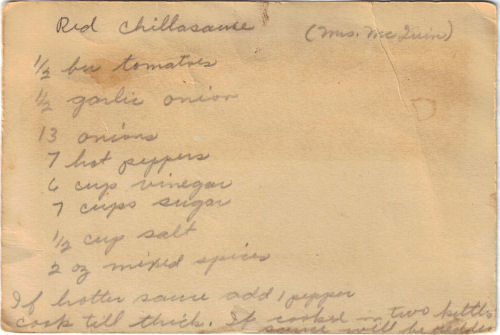 Red Chillasauce (Mrs. McQuin)
1/2 bu tomatoes
1/2 garlic onion
13 onions
7 hot peppers
6 cup vinegar
7 cups sugar
1/2 cup salt
2 oz mixed spices
If hotter sauce add 1 pepper
cook till thick. If cooked in two kettles
sauce will be